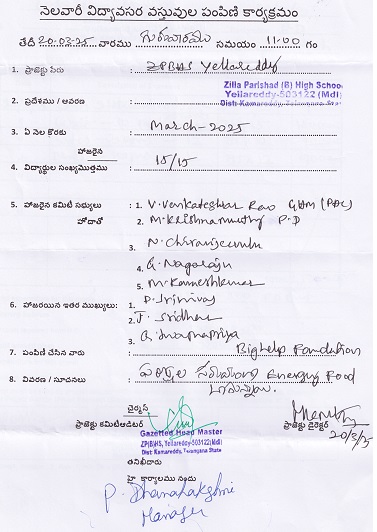 నెలవారీ విద్యావసర వస్తువుల పంపిణి కార్యక్రమం
తేది 20-03-25 వారము గురువారము సమయం 11-00 గం
1. ప్రాజెక్టు పేరు : ZPBHS Yellareddy
Zilla Parishad (B) High School
Yellareddy-503122 (Mdl)
Dist: Kamareddy, Telangana State
2. ప్రదేశము / ఆవరణ :
3. ఏ నెల కొరకు : March-2025
హాజరైన
4. విద్యార్థుల సంఖ్యమొత్తము : 15/15
5. హాజరైన కమిటీ సభ్యులు : 1. V. Venkateshwar Rao GHM
హోదాతో 2. M. Krishnamurthy P.D
3. N. Chiranjeevulu
4. G. Nagaraju
5. M. Kameshkumar
6. హాజరయిన ఇతర ముఖ్యులు: 1. P. Srinivas
2. T. Sridhar
3. G. Swapnapriya
7. పంపిణి చేసిన వారు : Bighelp Foundation
8. వివరణ / సూచనలు : Energy Food
చైర్మన్
ప్రాజెక్టు కమిటీఆడిటర్
ప్రాజెక్టు డైరెక్టర్
20/3/25
Gazetted Head Master
ZP(B)HS, Yellareddy-503122(Mdl)
Dist: Kamareddy, Telangana State
తనిఖీదారు
హై కార్యాలము నందు
P. Dhanalakshmi
Manager